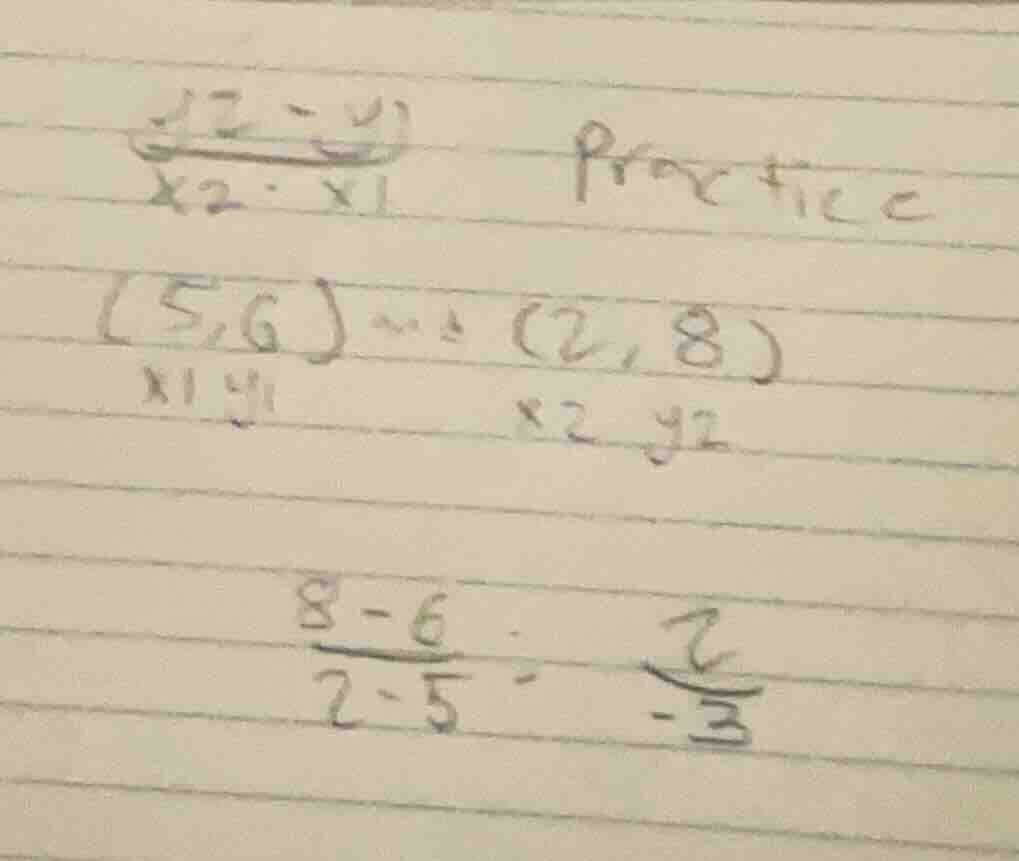 y2 - y1
x2 - x1
Practice
(5,6) (2,8)
x1 y1 x2 y2
8 - 6 = 2
2 - 5 -3